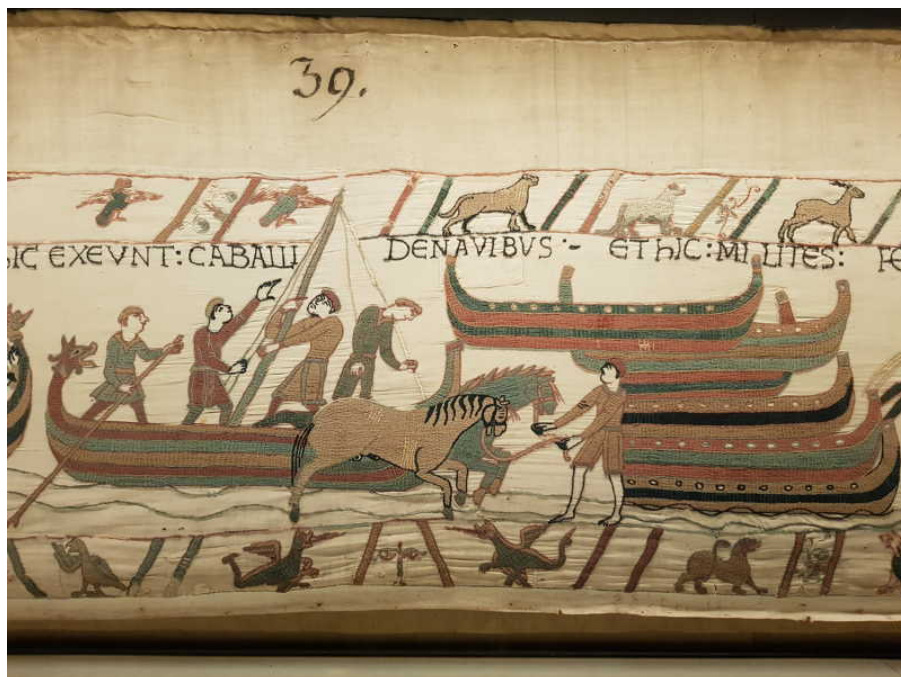 39.
HIC EXEVNT: CABALLI DENAVIBUS :- ET hIC: MILITES: